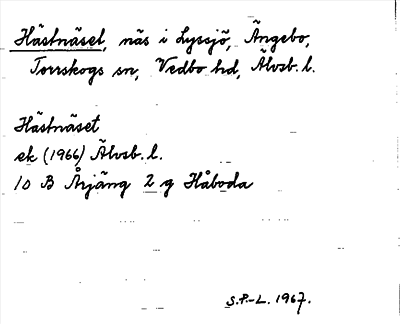 Hästnäset, näs i Lyssjö, Ängebo,
Torrskogs sn, Vedbo hd, Älvsb. l.
Hästnäset
ek (1966) Älvsb. l.
10 B Årjäng 2 g Håboda
S.P.-L. 1967.